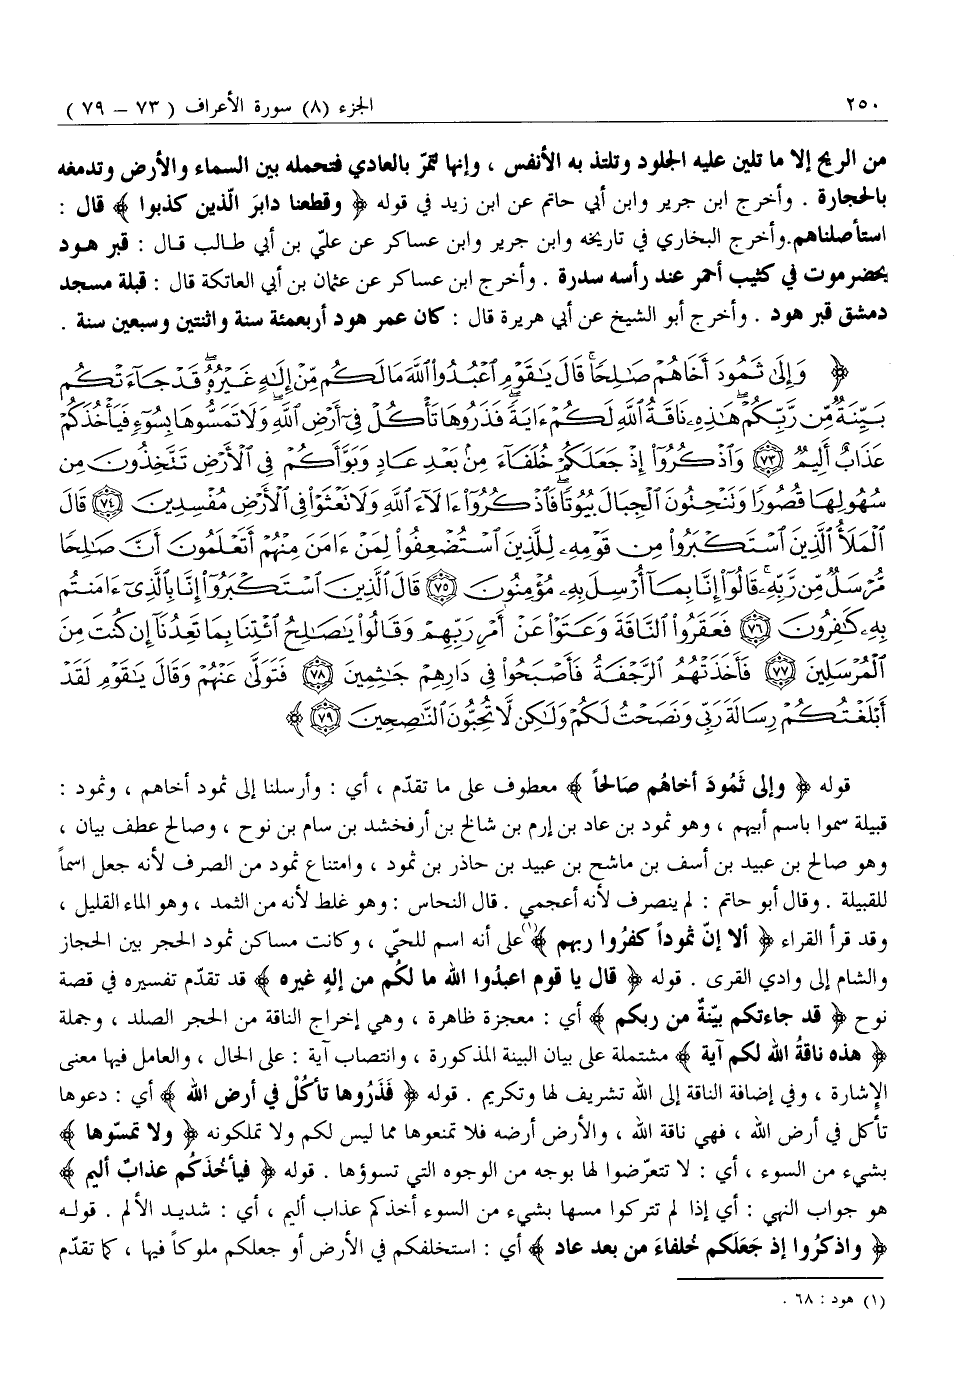 ٢٥٠ الجزء (٨) سورة الأعراف ( ٧٣ – ٧٩ )
من الريح إلا ما تلين عليه الجلود وتلتذ به الأنفس ، وإنها لتمرّ بالعادي فتحمله بين السماء والأرض وتدمغه
بالحجارة . وأخرج ابن جرير وابن أبي حاتم عن ابن زيد في قوله ﴿ وقطعنا دابرَ الّذين كذبوا ﴾ قال :
استأصلناهم.وأخرج البخاري في تاريخه وابن جرير وابن عساكر عن عليّ بن أبي طالب قال : قبر هود
بحضرموت في كثيب أحمر عند رأسه سدرة . وأخرج ابن عساكر عن عثمان بن أبي العاتكة قال : قبلة مسجد
دمشق قبر هود . وأخرج أبو الشيخ عن أبي هريرة قال : كان عمر هود أربعمئة سنة واثنتين وسبعين سنة .
﴿ وَإِلَىٰ ثَمُودَ أَخَاهُمْ صَٰلِحًا ۗ قَالَ يَٰقَوْمِ ٱعْبُدُوا۟ ٱللَّهَ مَا لَكُم مِّنْ إِلَٰهٍ غَيْرُهُۥ ۖ قَدْ جَآءَتْكُم
بَيِّنَةٌ مِّن رَّبِّكُمْ ۖ هَٰذِهِۦ نَاقَةُ ٱللَّهِ لَكُمْ ءَايَةً ۖ فَذَرُوهَا تَأْكُلْ فِىٓ أَرْضِ ٱللَّهِ ۖ وَلَا تَمَسُّوهَا بِسُوٓءٍ فَيَأْخُذَكُمْ
عَذَابٌ أَلِيمٌ ﴿٧٣﴾ وَٱذْكُرُوٓا۟ إِذْ جَعَلَكُمْ خُلَفَآءَ مِنۢ بَعْدِ عَادٍ وَبَوَّأَكُمْ فِى ٱلْأَرْضِ تَتَّخِذُونَ مِن
سُهُولِهَا قُصُورًا وَتَنْحِتُونَ ٱلْجِبَالَ بُيُوتًا ۖ فَٱذْكُرُوٓا۟ ءَالَآءَ ٱللَّهِ وَلَا تَعْثَوْا۟ فِى ٱلْأَرْضِ مُفْسِدِينَ ﴿٧٤﴾ قَالَ
ٱلْمَلَأُ ٱلَّذِينَ ٱسْتَكْبَرُوا۟ مِن قَوْمِهِۦ لِلَّذِينَ ٱسْتُضْعِفُوا۟ لِمَنْ ءَامَنَ مِنْهُمْ أَتَعْلَمُونَ أَنَّ صَٰلِحًا
مُّرْسَلٌ مِّن رَّبِّهِۦ ۚ قَالُوٓا۟ إِنَّا بِمَآ أُرْسِلَ بِهِۦ مُؤْمِنُونَ ﴿٧٥﴾ قَالَ ٱلَّذِينَ ٱسْتَكْبَرُوٓا۟ إِنَّا بِٱلَّذِىٓ ءَامَنتُم
بِهِۦ كَٰفِرُونَ ﴿٧٦﴾ فَعَقَرُوا۟ ٱلنَّاقَةَ وَعَتَوْا۟ عَنْ أَمْرِ رَبِّهِمْ وَقَالُوا۟ يَٰصَٰلِحُ ٱئْتِنَا بِمَا تَعِدُنَآ إِن كُنتَ مِنَ
ٱلْمُرْسَلِينَ ﴿٧٧﴾ فَأَخَذَتْهُمُ ٱلرَّجْفَةُ فَأَصْبَحُوا۟ فِى دَارِهِمْ جَٰثِمِينَ ﴿٧٨﴾ فَتَوَلَّىٰ عَنْهُمْ وَقَالَ يَٰقَوْمِ لَقَدْ
أَبْلَغْتُكُمْ رِسَالَةَ رَبِّى وَنَصَحْتُ لَكُمْ وَلَٰكِن لَّا تُحِبُّونَ ٱلنَّٰصِحِينَ ﴿٧٩﴾ ﴾
قوله ﴿ وإلى ثَمُودَ أخاهُم صَالحاً ﴾ معطوف على ما تقدّم ، أي : وأرسلنا إلى ثمود أخاهم ، وثمود :
قبيلة سموا باسم أبيهم ، وهو ثمود بن عاد بن إرم بن شالخ بن أرفخشد بن سام بن نوح ، وصالح عطف بيان ،
وهو صالح بن عبيد بن أسف بن ماشح بن عبيد بن حاذر بن ثمود ، وامتناع ثمود من الصرف لأنه جعل اسماً
للقبيلة . وقال أبو حاتم : لم ينصرف لأنه أعجمي . قال النحاس : وهو غلط لأنه من الثمد ، وهو الماء القليل ،
وقد قرأ القراء ﴿ ألا إنّ ثموداً كفرُوا ربهم ﴾(١) على أنه اسم للحيّ ، وكانت مساكن ثمود الحجر بين الحجاز
والشام إلى وادي القرى . قوله ﴿ قال يا قوم اعبدُوا الله ما لكُم من إلهٍ غيره ﴾ قد تقدّم تفسيره في قصة
نوح ﴿ قد جاءتكم بيّنةٌ من ربكم ﴾ أي : معجزة ظاهرة ، وهي إخراج الناقة من الحجر الصلد ، وجملة
﴿ هذه ناقةُ الله لكم آية ﴾ مشتملة على بيان البينة المذكورة ، وانتصاب آية : على الحال ، والعامل فيها معنى
الإشارة ، وفي إضافة الناقة إلى الله تشريف لها وتكريم . قوله ﴿ فَذَرُوها تأكُلْ في أرض الله ﴾ أي : دعوها
تأكل في أرض الله ، فهي ناقة الله ، والأرض أرضه فلا تمنعوها مما ليس لكم ولا تملكونه ﴿ ولا تمسّوها ﴾
بشيء من السوء ، أي : لا تتعرّضوا لها بوجه من الوجوه التي تسوؤها . قوله ﴿ فيأخُذَكُم عذابٌ أليم ﴾
هو جواب النهي : أي إذا لم تتركوا مسها بشيء من السوء أخذكم عذاب أليم ، أي : شديد الألم . قوله
﴿ واذكُروا إذ جَعَلَكم خُلفاءَ من بعد عاد ﴾ أي : استخلفكم في الأرض أو جعلكم ملوكاً فيها ، كما تقدّم
(١) هود : ٦٨ .